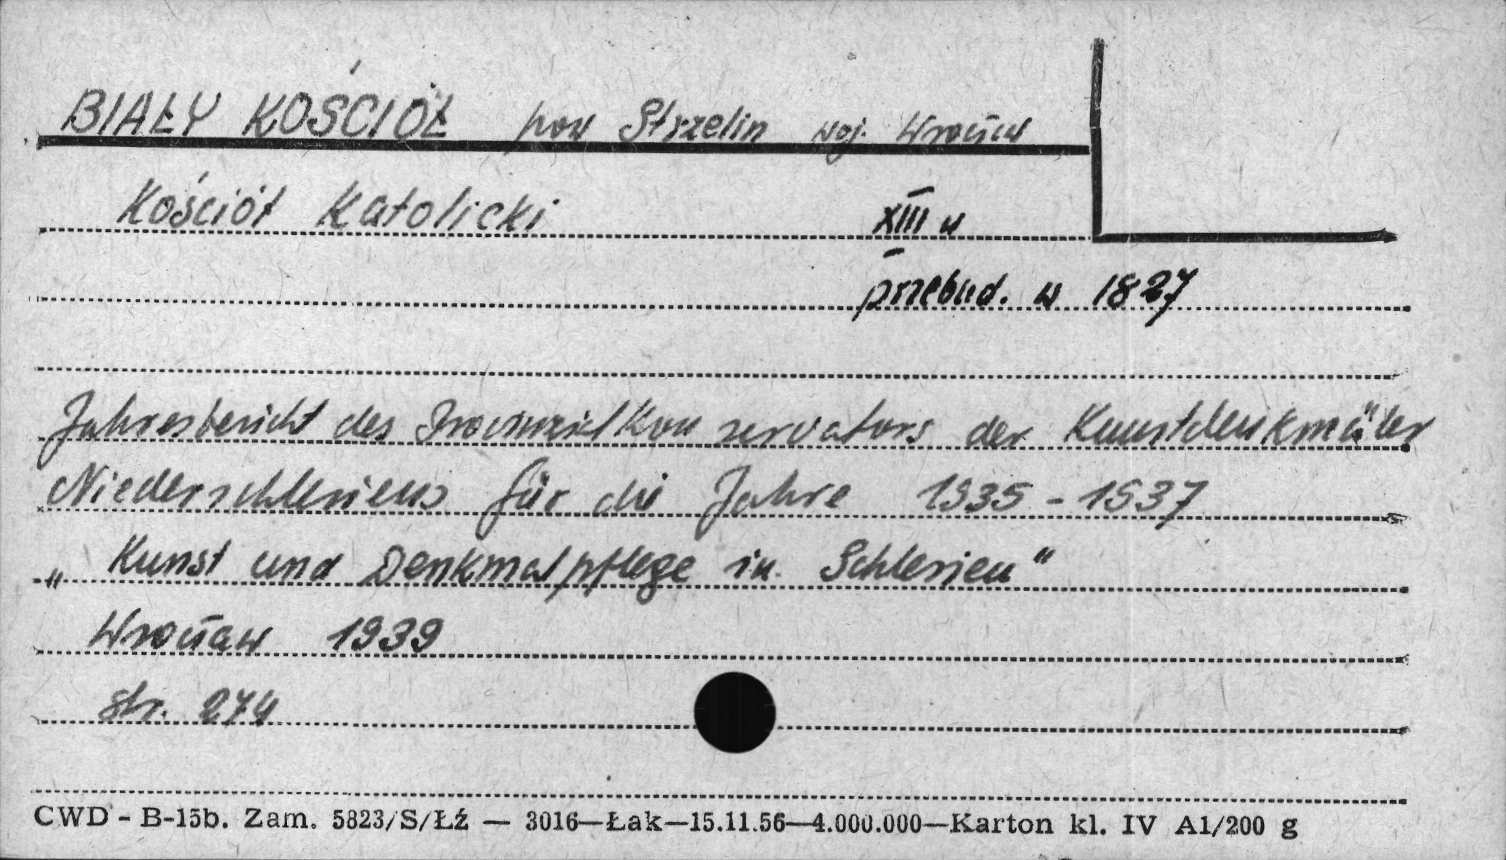 BIAŁY KOŚCIÓŁ pow Strzelin woj. Wrocław
Kościół Katolicki XIII w
przebud. w 1827
Jahresbericht des Provinzialkonservators der Kunstdenkmäler
Niederschlesiens für die Jahre 1935-1937
„Kunst und Denkmalpflege in Schlesien"
Wrocław 1939
str. 274
CWD - B-15b. Zam. 5823/S/Łź — 3016—Łak—15.11.56—4.000.000—Karton kl. IV A1/200 g